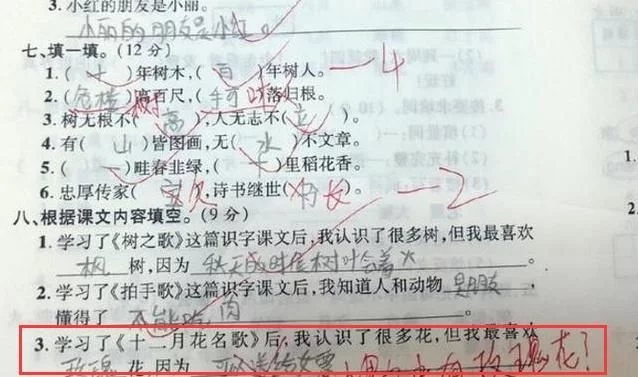 3. 小红的朋友是小丽。
小丽的朋友是小红。
七、填一填。(12 分)
1. ( 十 )年树木,( 百 )年树人。 —4
2. (危楼)高百尺,( )落归根。
3. 树无根不( 高 ),人无志不( 立 )。
4. 有( 山 )皆图画,无( 水 )不文章。
5. ( 一 )畦春韭绿,( 十 )里稻花香。
6. 忠厚传家( 宝久 ),诗书继世( 长 )。 —2
八、根据课文内容填空。(9 分)
1. 学习了《树之歌》这篇识字课文后,我认识了很多树,但我最喜欢
枫 树,因为 秋天 时 树叶会 。
2. 学习了《拍手歌》这篇识字课文后,我知道人和动物 是朋友 ,
懂得了 不能吃肉 。
3. 学习了《十二月花名歌》后,我认识了很多花,但我最喜欢
玫瑰 花,因为 可以送给女 玫瑰花?
1.
2.